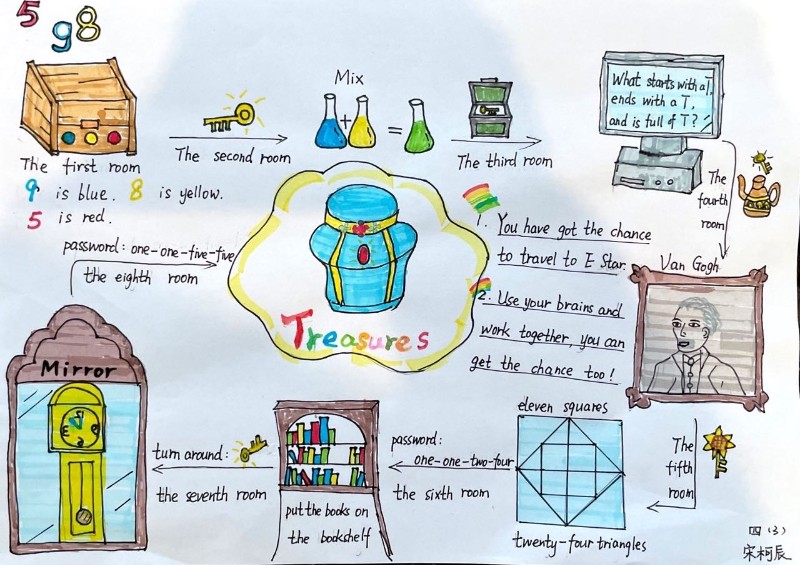 5
9
8
The first room
9 is blue. 8 is yellow.
5 is red.
The second room
Mix
+
=
The third room
What starts with a T,
ends with a T,
and is full of T?
The
fourth
room
Van Gogh
The
fifth
room
eleven squares
twenty-four triangles
password:
one-one-two-four
the sixth room
put the books on
the bookshelf
turn around:
the seventh room
Mirror
password: one-one-five-five
the eighth room
Treasures
1. You have got the chance
to travel to E Star.
2. Use your brains and
work together, you can
get the chance too!
四(3)
宋柯辰